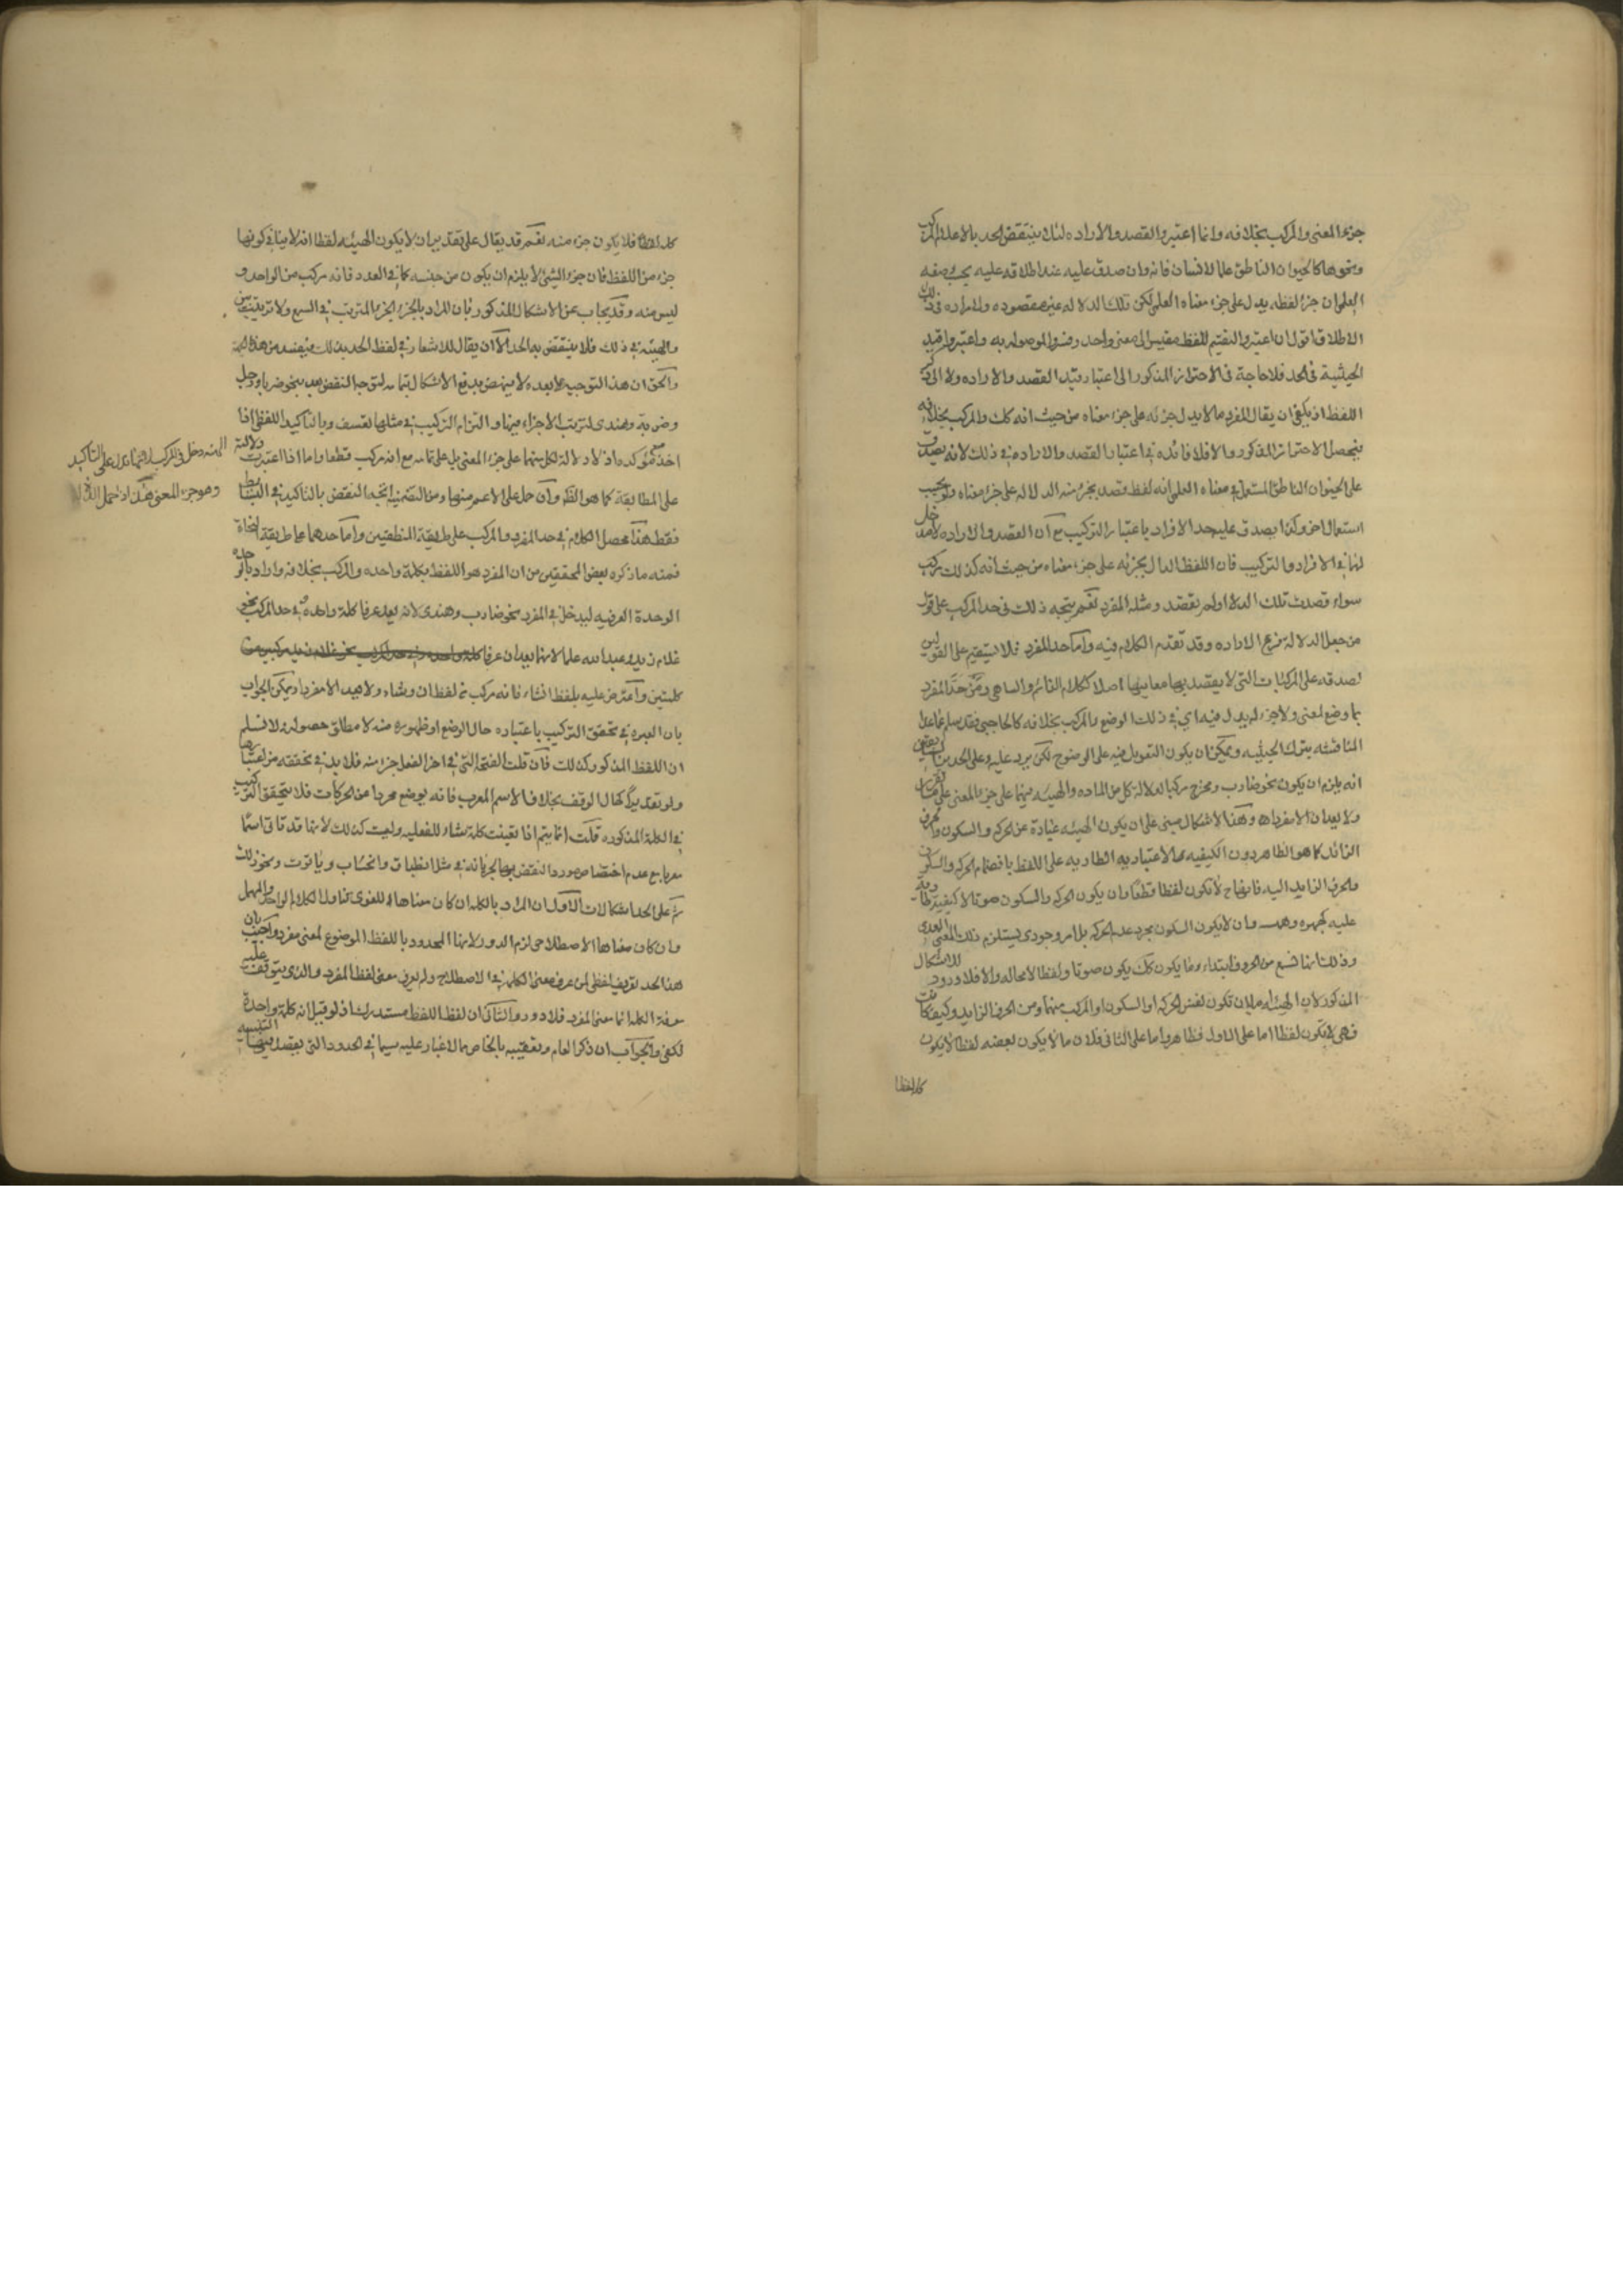 جزء المعنى والمركب بخلافه وانما اعتبروا القصد والاراده لئلا ينتقض الحد بالاعلام المركبه
ونحوها كالحيوان الناطق علما لانسان فانه وان صدق عليه عند اطلاقه عليه يجب وصفه
العلمي ان جزء لفظه يدل على جزء معناه العلمي لكن تلك الدلاله غير مقصوده والمراده في ذلك
الاطلاق اقول ان اعتبروا التقسيم للفظ مقيس الى معنى واحد رضوا الموصوله به واعتبروا قيد
الحيثية في الحد فلا حاجة في الاحتراز المذكور الى اعتبار قيد القصد والاراده ولا الى ذكر
اللفظ اذ يكفي ان يقال المفرد ما لا يدل جزئه على جزء معناه من حيث انه كذلك والمركب بخلافه
يحصل الاحتراز المذكور والا فلا فائده في اعتبار القصد والاراده في ذلك لانه يصدق
على الحيوان الناطق المستعمل في معناه العلمي انه لفظ قصد بجزء منه الدلاله على جزء معناه ولو بحسب
استعمال اخر وكذا يصدق عليه حد الافراد باعتبار التركيب مع ان القصد والاراده لا مدخل
لهما في الافراد والتركيب فان اللفظ الدال بجزئه على جزء معناه من حيث انه كذلك مركب
سواء قصدت تلك الدلاله او لم تقصد ومثله المفرد نعم يتجه ذلك في حد المركب على قول
من جعل الدلاله فرع الاراده وقد تقدم الكلام فيه واما حد المفرد فلا يستقيم على القولين
لصدقه على المركبات التي لا يقصد بها معانيها اصلا ككلام النائم والساهي ومن حد المفرد
بما وضع لمعنى ولا جزء له يدل فيه اي في ذلك الوضع والمركب بخلافه كالحاجبي فقد سلم عما عدا
المناقشه بترك الحيثيه ويمكن ان يكون التعويل فيه على الوضوح لكن يرد عليه وعلى الحدين السابقين
انه يلزم ان يكون نحو ضارب ومخرج مركبا لدلالة كل من الماده والهيئه فيهما على جزء المعنى على
ولا يعدان الا مفردا وهذا الاشكال مبنى على ان يكون الهيئه عبارة عن الحركه والسكون والحرف
الزائد كما هو الظاهر دون الكيفيه الاعتباريه الطاريه على اللفظ بانضمام الحركه والسكون
والحرف الزايد اليه فايضاح لا تكون لفظا قطعا وان يكون الحركه والسكون صوتا لا كيفية طارية
عليه كجهره وهمسه وان لا يكون السكون مجرد عدم الحركه بل امر وجودى يستلزم ذلك المعنى العدمى
وذلك انما تسمع من الحروف ابتداء وما يكون كك يكون صوتا ولفظا لا محاله والا فلا ورود للاشكال
المذكور لان الهيئه اما ان تكون نفس الحركه او السكون او المركب منهما ومن الحرف الزايد وكيف كانت
فهى لا تكون لفظا اما على الاول فظاهر واما على الثانى فلان ما لا يكون بعضه لفظا لا يكون
كله لفظا
كله لفظا فلا يكون جزء منه نعم قد يقال على تقدير ان لا يكون الهيئه لفظا انه لا ينافى كونها
جزء من اللفظ فان جزء الشئ لا يلزم ان يكون من جنسه كما في العدد فانه مركب من الواحد و
ليس منه وقد يجاب عن الاشكال المذكور بان المراد بالجزء الجزء المترتب في السمع ولا ترتيب بين
والهيئه في ذلك فلا ينتقض به الحد الا ان يقال لا اشعار في لفظ الحد بذلك فيفسد من هذه الجهة
والحق ان هذا التوجيه على بعده لا ينهض بدفع الاشكال بتمامه لتوجه النقض بعد بنحو ضربا ورجل
وضربة وهندى لترتب الاجزاء فيها والتزام التركيب في مثلها تعسف وبالتاكيد اللفظى اذا
اخذ مع مؤكده اذ لا دلالة لكل منهما على جزء المعنى بل على تمامه مع انه مركب قطعا واما اذا اعتبرت دلالة
الهيئه دخل في المركب لانها تدل على التاكيد
وهو جزء المعنى هذا اذا حمل الدلالة
على المطابقة كما هو الظ وان حمل على الاعم منها ومن التضمنية اتجه النقض بالتاكيد في البسائط
فقط هذا محصل الكلام في حد المفرد والمركب على طريقة المنطقيين واما حدهما على طريقة النحاة
فمنه ما ذكره بعض المحققين من ان المفرد هو اللفظ بكلمة واحده والمركب بخلافه واراد بالوحدة
الوحدة العرفيه ليدخل في المفرد نحو ضارب وهندى لانه يعد عرفا كلمة واحدة و في حد المركب نحو
غلام زيد وعبد الله علما لانهما يعدان عرفا
كلمتين واعترض عليه بلفظ انشاء فانه مركب من لفظ ان وشاء ولا يعد الا مفردا ويمكن الجواب
بان العبره في تحقق التركيب باعتباره حال الوضع او ظهوره منه لا مطلق حصوله ولا نسلم
ان اللفظ المذكور كذلك فان قلت الفتحة التى في اخر الفعل جزء منه فلا بد في تحققه من اعتبارها
ولو تقديرا كحال الوقف بخلاف الاسم المعرب فانه يوضع مجردا عن الحركات فلا يتحقق التركيب
في الكلمة المذكوره قلت انما يتم اذا تعينت كلمة شاء للفعليه وليست كذلك لانها قد تاتى اسما
معربا مع عدم اختصاص مورد النقض بها لجريانه في مثل انطباق وانحساب وياقوت ونحو ذلك
ثم على الحد اشكالات الاول ان المراد بالكلمه ان كان معناها اللغوى تناول الكلام الواحد والمهمل
وان كان معناها الاصطلاحى لزم الدور لانها المحدود باللفظ الموضوع لمعنى مفرد واجيب بان
هذا الحد تعريف لفظى لمن عرف معنى الكلمه في الاصطلاح ولم يعرف معنى لفظ المفرد والذى يتوقف عليه
معرفة الكلمه انما معنى المفرد فلا دور والثانى ان لفظ اللفظ مستدرك اذ لو قيل انه كلمة واحدة
لكفى والجواب ان ذكر العام وتعقيبه بالخاص مما لا غبار عليه سيما في الحدود التى يقصد فيها التنبيه